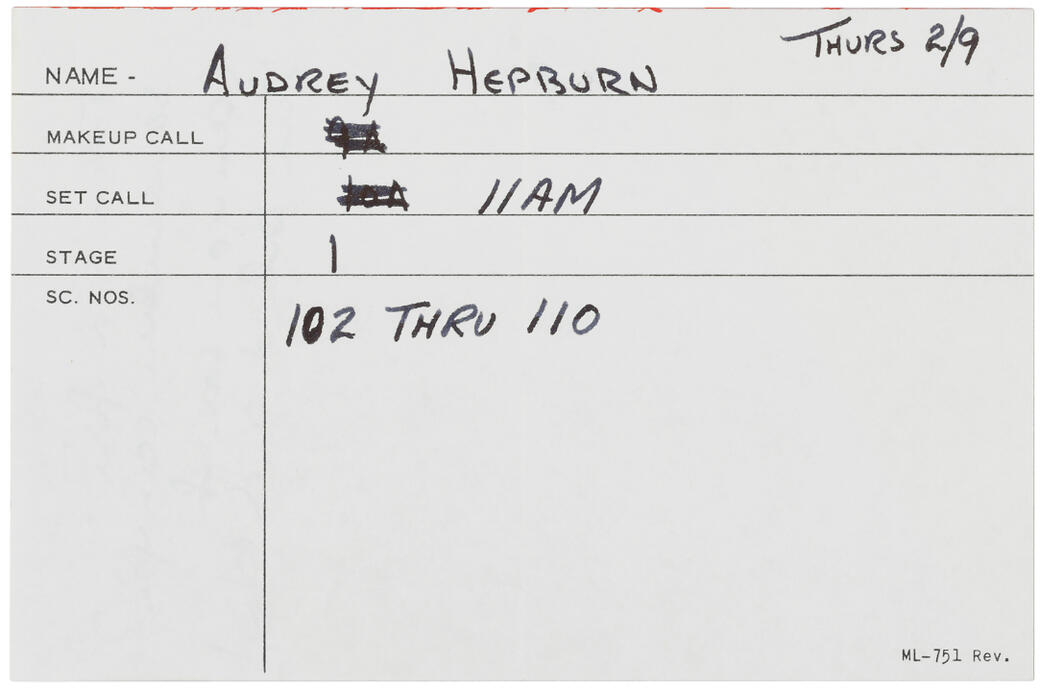 THURS 2/9
NAME - AUDREY HEPBURN
MAKEUP CALL 9A
SET CALL 10A 11AM
STAGE 1
SC. NOS.
102 THRU 110
ML-751 Rev.